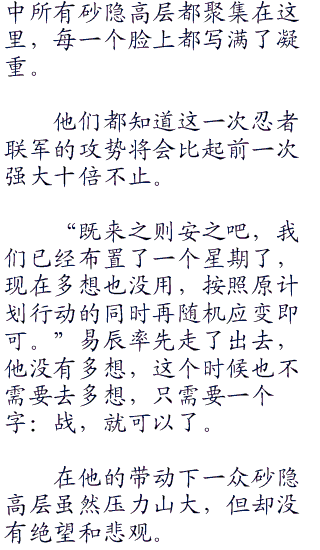 中所有砂隐高层都聚集在这
里，每一个脸上都写满了凝
重。
他们都知道这一次忍者
联军的攻势将会比起前一次
强大十倍不止。
“既来之则安之吧，我
们已经布置了一个星期了，
现在多想也没用，按照原计
划行动的同时再随机应变即
可。”易辰率先走了出去，
他没有多想，这个时候也不
需要去多想，只需要一个
字：战，就可以了。
在他的带动下一众砂隐
高层虽然压力山大，但却没
有绝望和悲观。